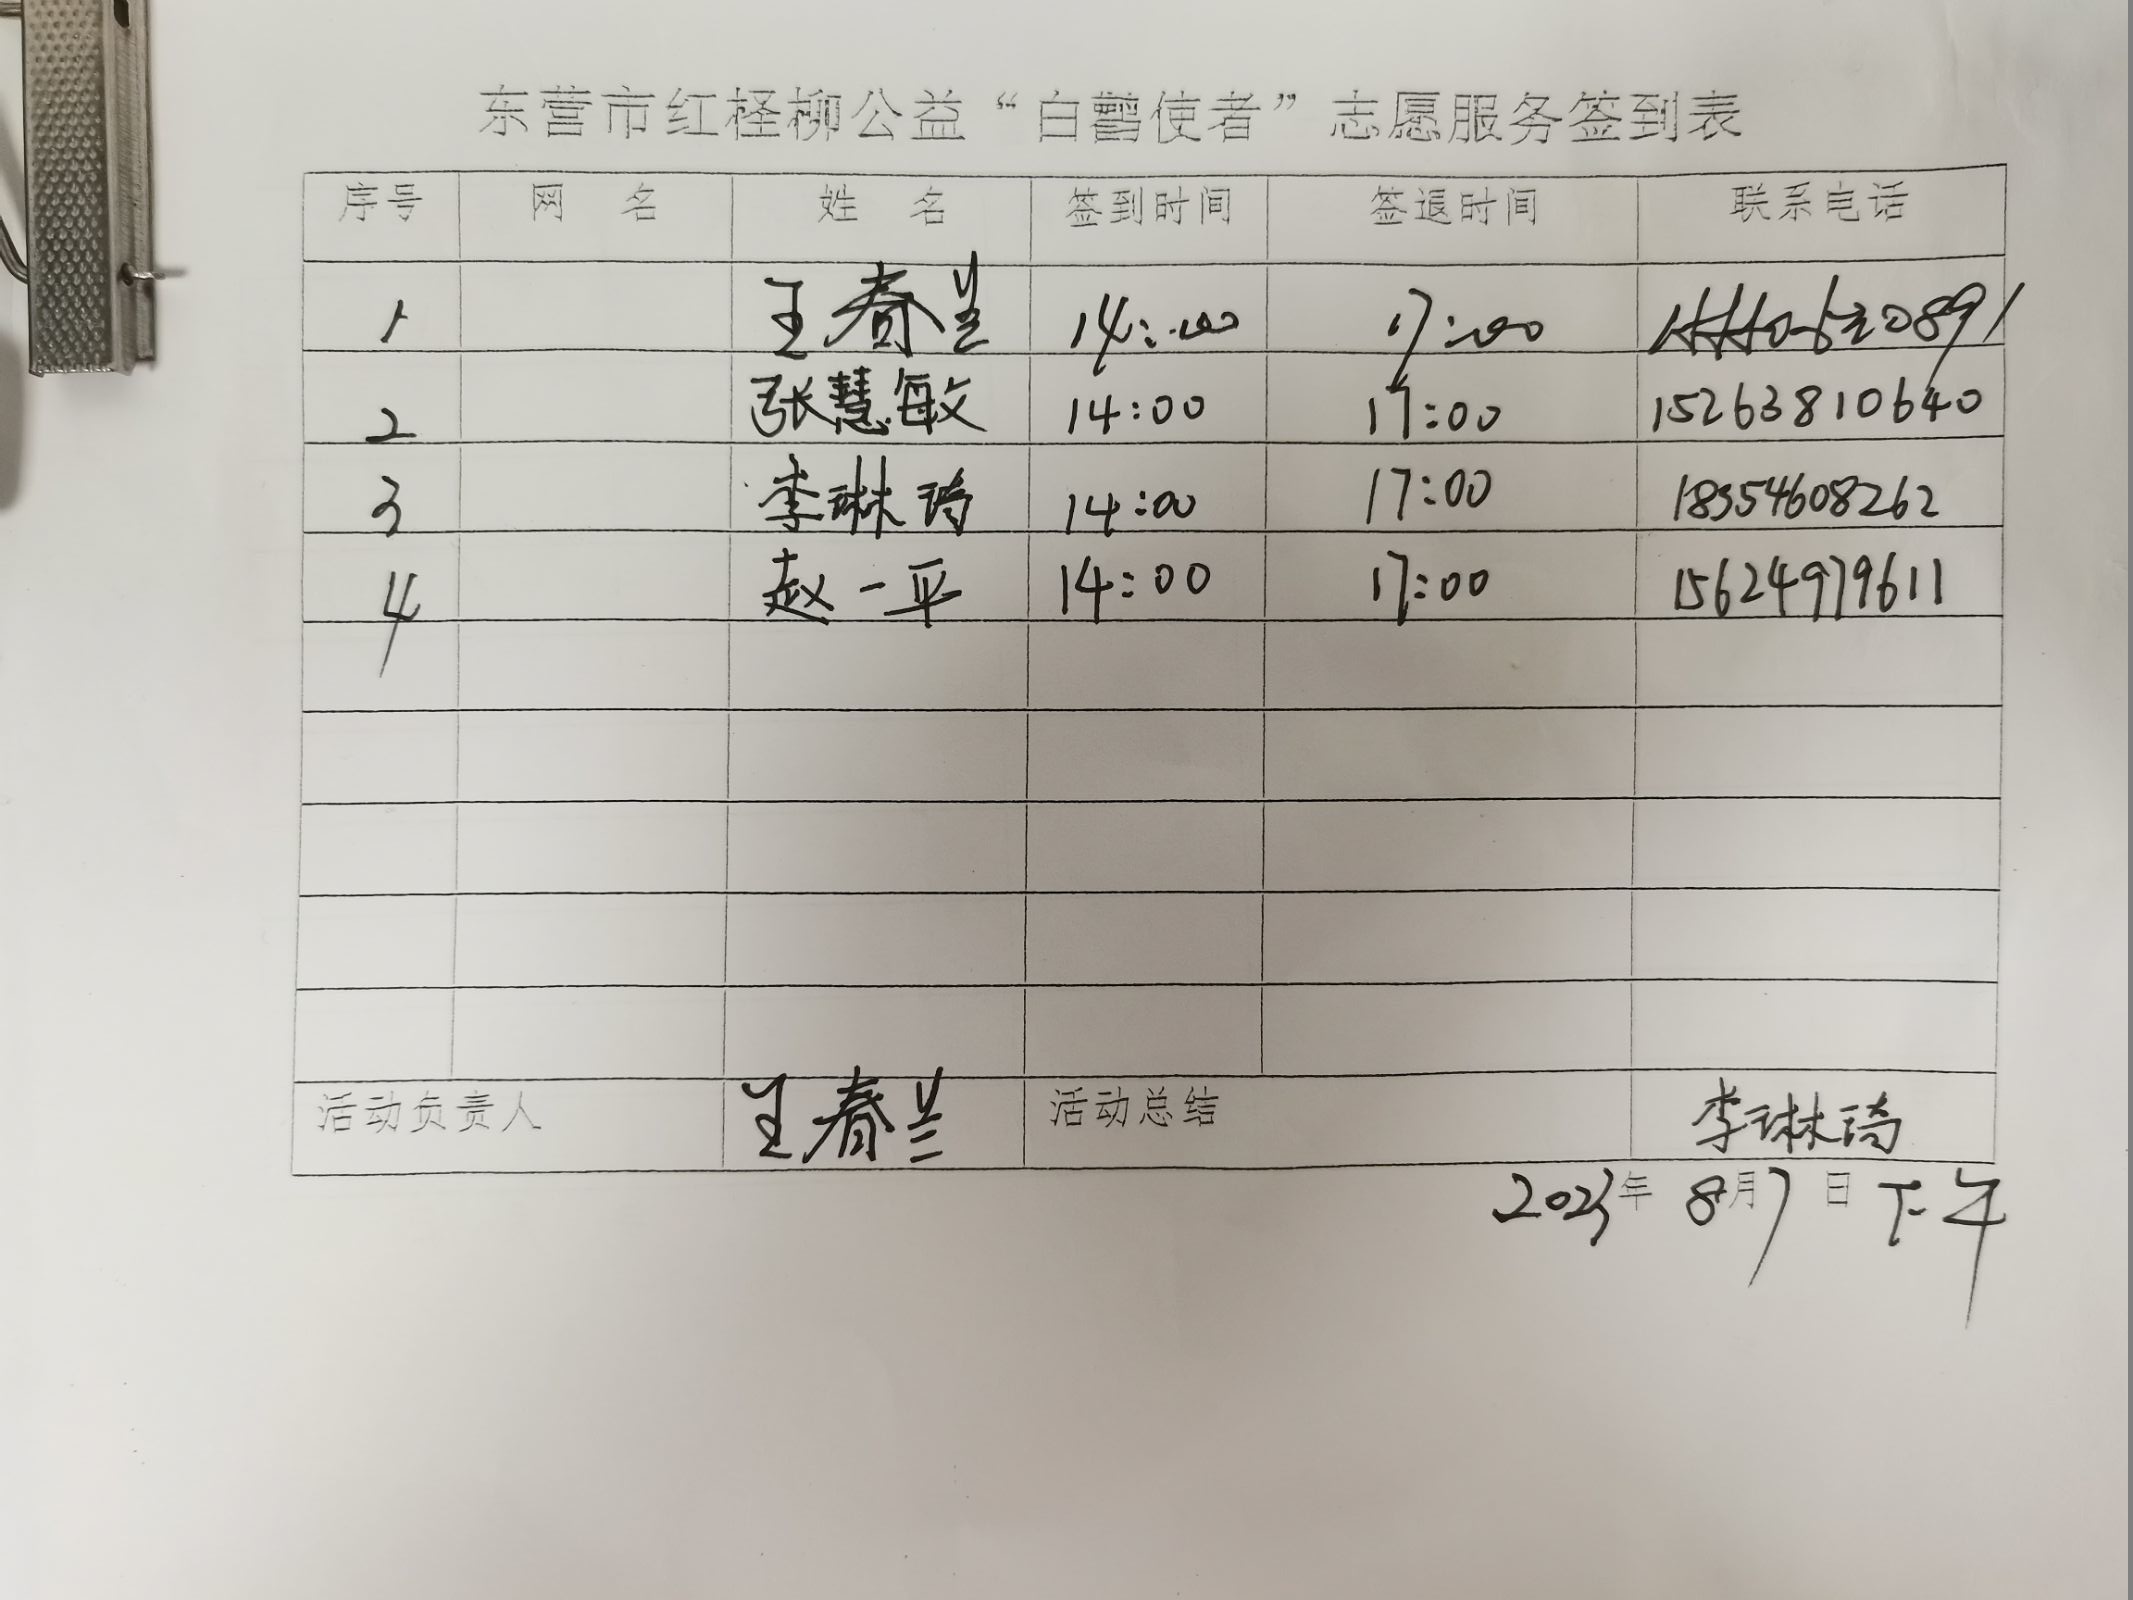 东营市红柽柳公益“白鹳使者”志愿服务签到表
序号 网 名 姓 名 签到时间 签退时间 联系电话
1 王春兰 14:00 17:00
2 张慧敏 14:00 17:00 15263810640
3 李琳琦 14:00 17:00 18354608262
4 赵一平 14:00 17:00 15624979611
活动负责人 王春兰 活动总结 李琳琦
2023年 8月7日 下午